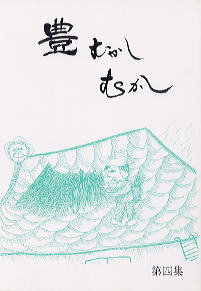 豊むかし
むかし
第四集